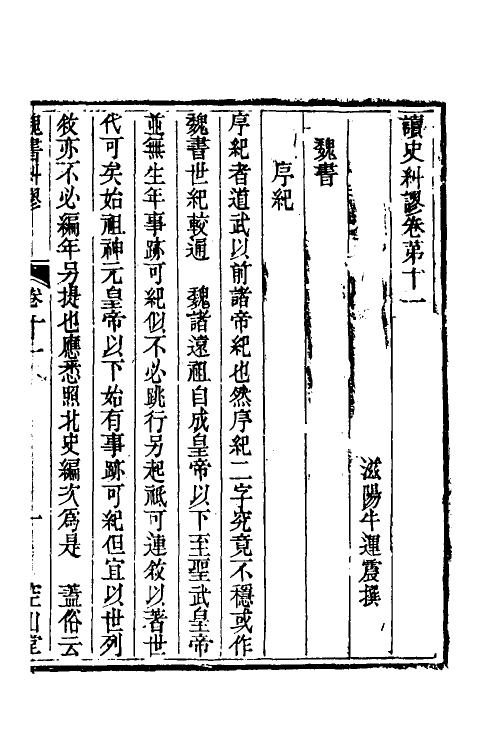 讀史糾謬卷第十一
滋陽牛運震撰
魏書
序紀
序紀者道武以前諸帝紀也然序紀二字究竟不穩或作
魏書世紀較通　魏諸遠祖自成皇帝以下至聖武皇帝
並無生年事跡可紀似不必跳行另起祇可連敘以著世
代可矣始祖神元皇帝以下始有事跡可紀但宜以世列
敘亦不必編年另提也應悉照北史編次為是　蓋俗云
魏書糾謬
卷十一
一
空山堂